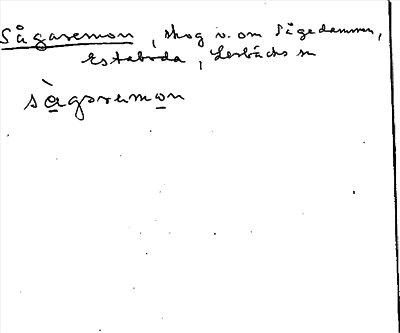 Sågaremon, skog v. om Sågedammen,
Estaboda, Lerbäcks sn
sågaremon